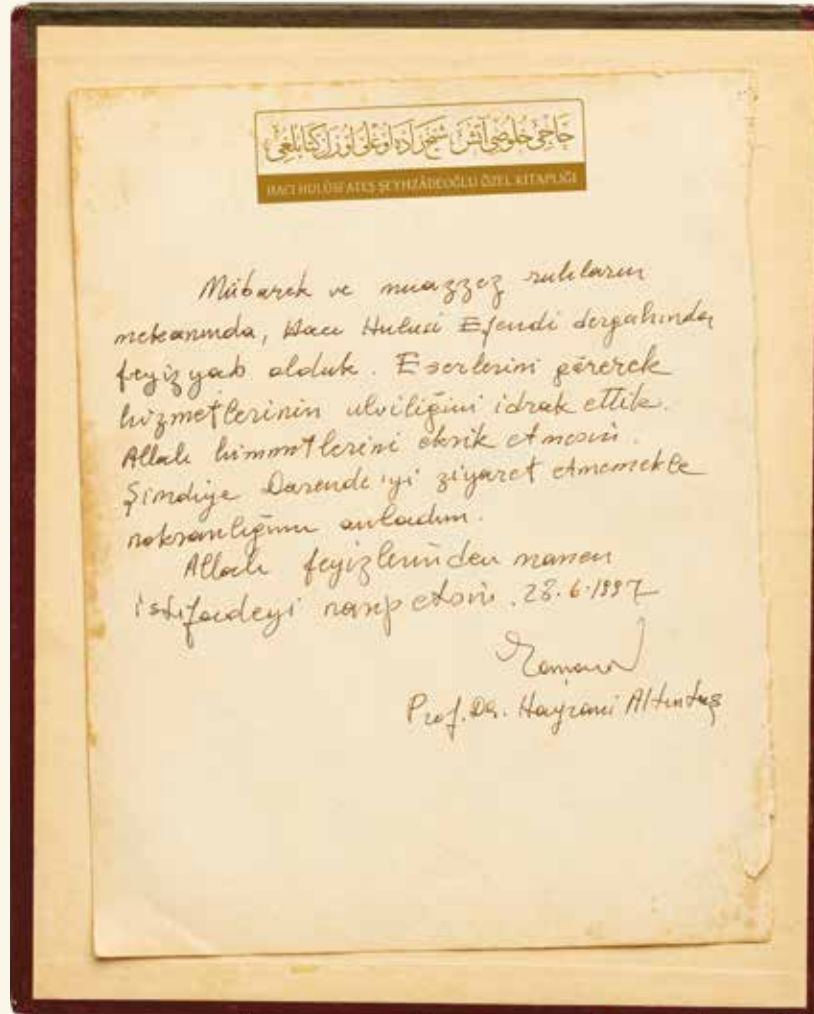 حاجى خلوصى آتش شيخزاده اوغلى اوزل كتابلغى
HACI HULÛSİ ATEŞ ŞEYHZÂDEOĞLU ÖZEL KİTAPLIĞI
Mübarek ve muazzez ruhların
mekanında, Hacı Hulusi Efendi dergahında
feyizyab olduk. Eserlerini görerek
hizmetlerinin ulviliğini idrak ettik.
Allah himmetlerini eksik etmesin.
Şimdiye Darende'yi ziyaret etmemekle
noksanlığımı anladım.
Allah feyizlerinden manen
istifadeyi nasip etsin. 28.6.1997
Prof. Dr. Hayrani Altıntaş